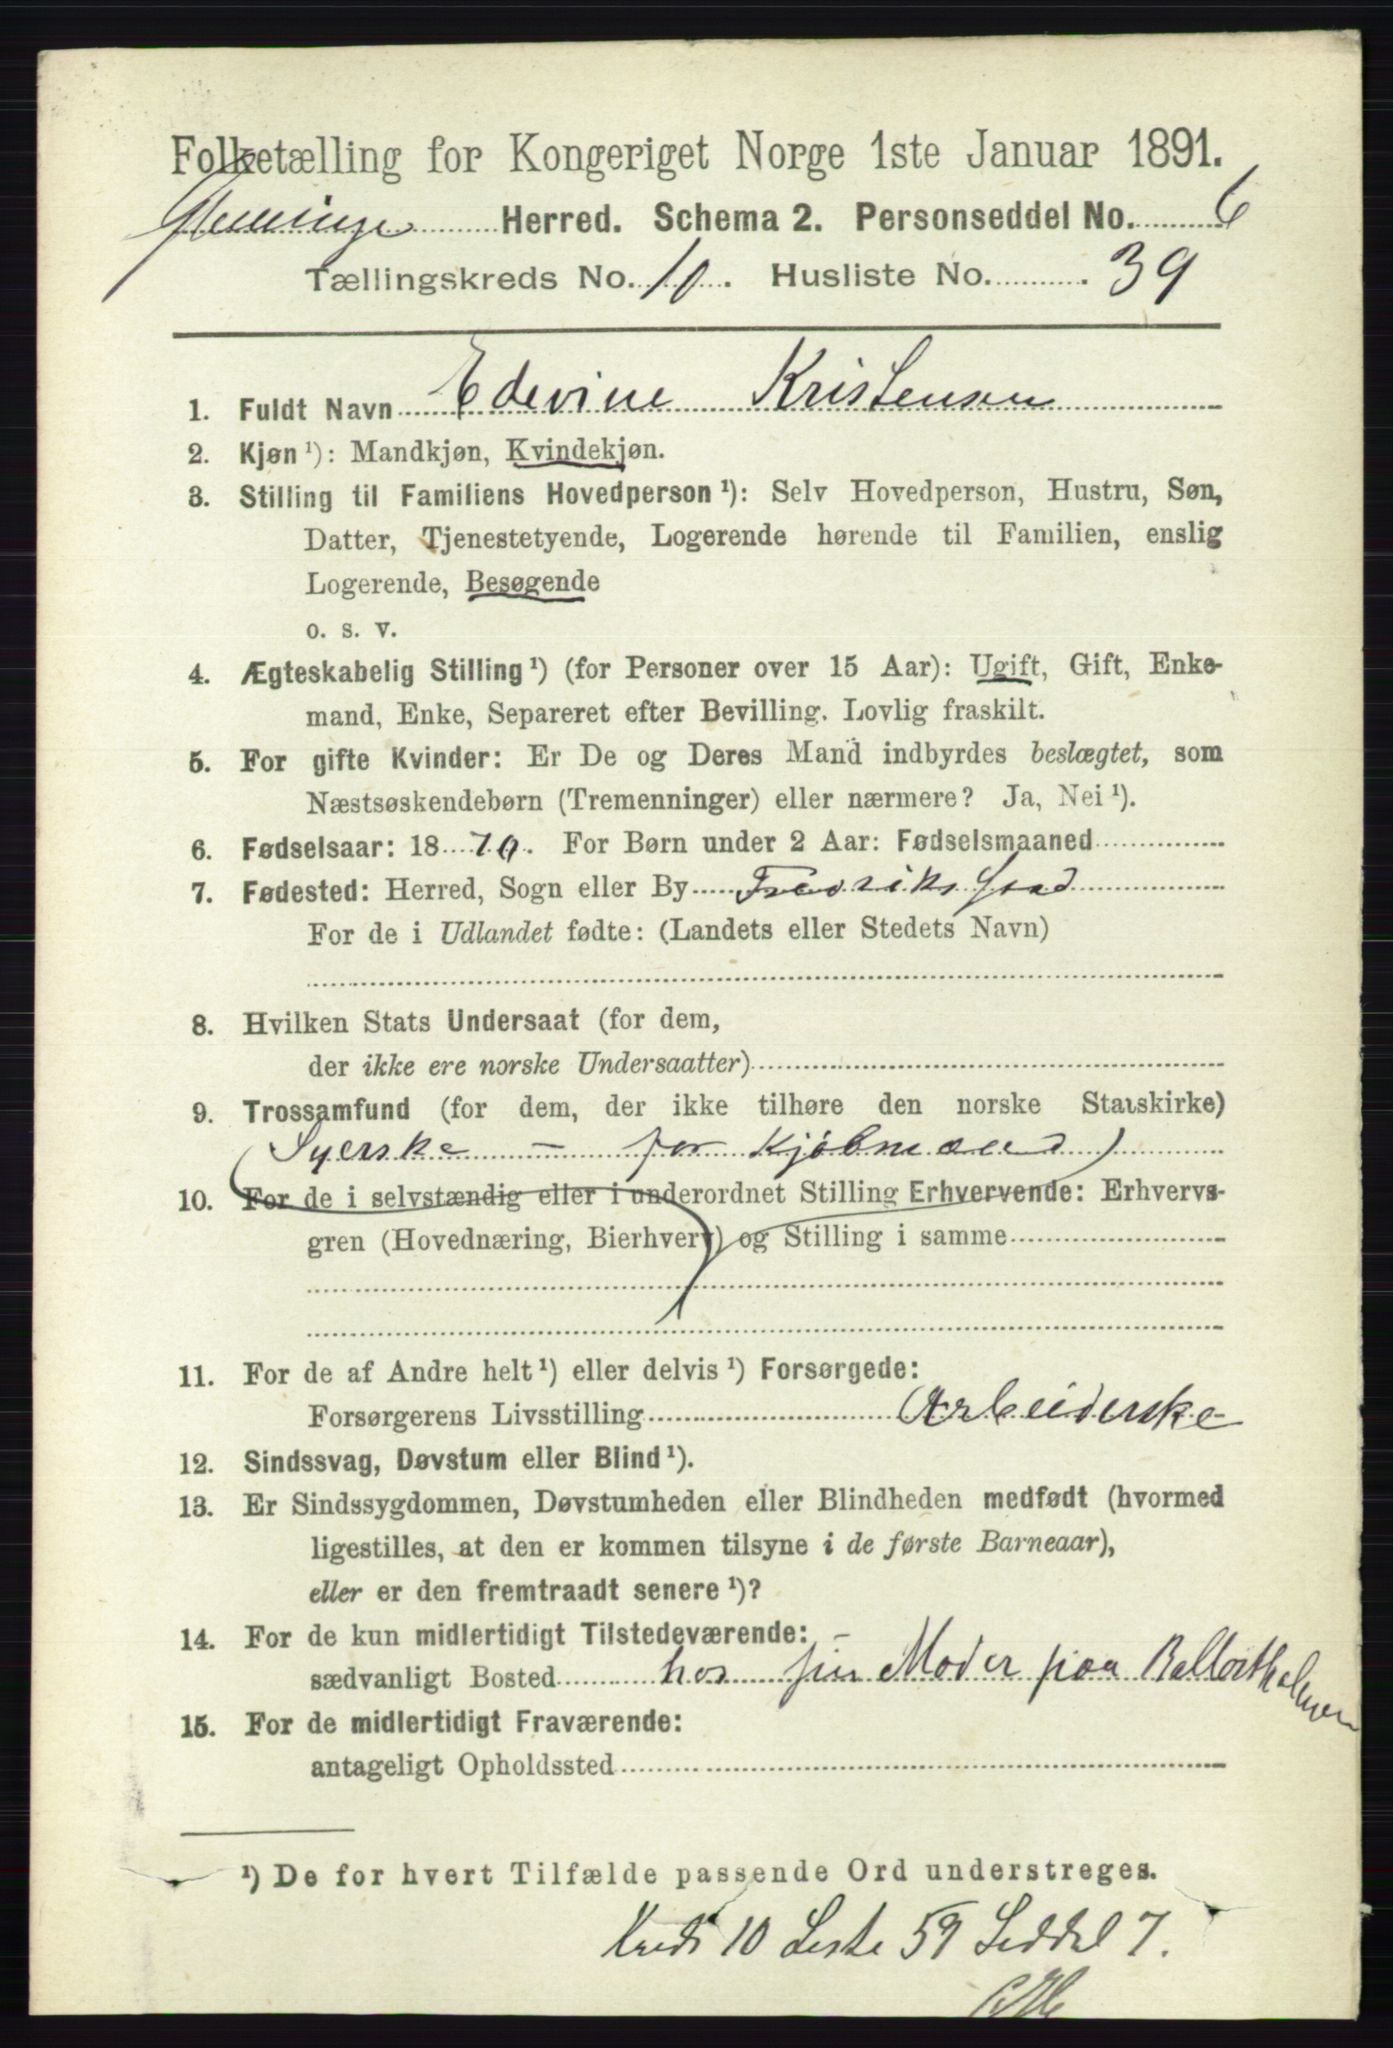 Folketælling for Kongeriget Norge 1ste Januar 1891.
Glemminge Herred. Schema 2. Personseddel No. 6
Tællingskreds No. 10. Husliste No. 39
1. Fuldt Navn Edevine Kristensen
2. Kjøn ¹): Mandkjøn, Kvindekjøn.
3. Stilling til Familiens Hovedperson ¹): Selv Hovedperson, Hustru, Søn,
Datter, Tjenestetyende, Logerende hørende til Familien, enslig
Logerende, Besøgende
o. s. v.
4. Ægteskabelig Stilling ¹) (for Personer over 15 Aar): Ugift, Gift, Enke-
mand, Enke, Separeret efter Bevilling. Lovlig fraskilt.
5. For gifte Kvinder: Er De og Deres Mand indbyrdes beslægtet, som
Næstsøskendebørn (Tremenninger) eller nærmere? Ja, Nei ¹).
6. Fødselsaar: 1870. For Børn under 2 Aar: Fødselsmaaned
7. Fødested: Herred, Sogn eller By Fredriksstad
For de i Udlandet fødte: (Landets eller Stedets Navn)
8. Hvilken Stats Undersaat (for dem,
der ikke ere norske Undersaatter)
9. Trossamfund (for dem, der ikke tilhøre den norske Statskirke)
(Syerske – for Kjøbmænd)
10. For de i selvstændig eller i underordnet Stilling Erhvervende: Erhvervs-
gren (Hovednæring, Bierhverv) og Stilling i samme
11. For de af Andre helt ¹) eller delvis ¹) Forsørgede:
Forsørgerens Livsstilling Arbeiderske
12. Sindssvag, Døvstum eller Blind ¹).
13. Er Sindssygdommen, Døvstumheden eller Blindheden medfødt (hvormed
ligestilles, at den er kommen tilsyne i de første Barneaar),
eller er den fremtraadt senere ¹)?
14. For de kun midlertidigt Tilstedeværende:
sædvanligt Bosted hos sin Moder paa
15. For de midlertidigt Fraværende:
antageligt Opholdssted
¹) De for hvert Tilfælde passende Ord understreges.
Kreds 10 Liste 59 Seddel 7.